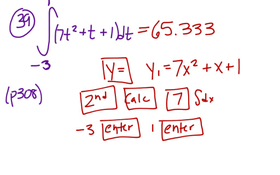 39 ∫ (7t² + t + 1)dt = 65.333
-3
Y= y₁ = 7x² + x + 1
(p308)
2nd Calc 7 ∫dx
-3 enter 1 enter